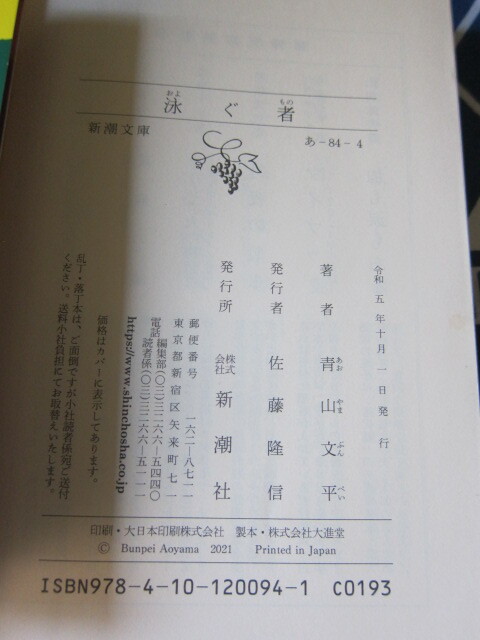 泳ぐ者
およ もの
新潮文庫
あ-84-4
令和五年十月一日発行
著者 青山文平
あお やま ぶん ぺい
発行者 佐藤隆信
発行所 株式会社 新潮社
郵便番号 一六二-八七一一
東京都新宿区矢来町七一
電話 編集部(〇三)三二六六-五四四〇
読者係(〇三)三二六六-五一一一
https://www.shinchosha.co.jp
価格はカバーに表示してあります。
乱丁・落丁本は、ご面倒ですが小社読者係宛ご送付
ください。送料小社負担にてお取替えいたします。
印刷・大日本印刷株式会社 製本・株式会社大進堂
© Bunpei Aoyama 2021 Printed in Japan
ISBN978-4-10-120094-1 C0193